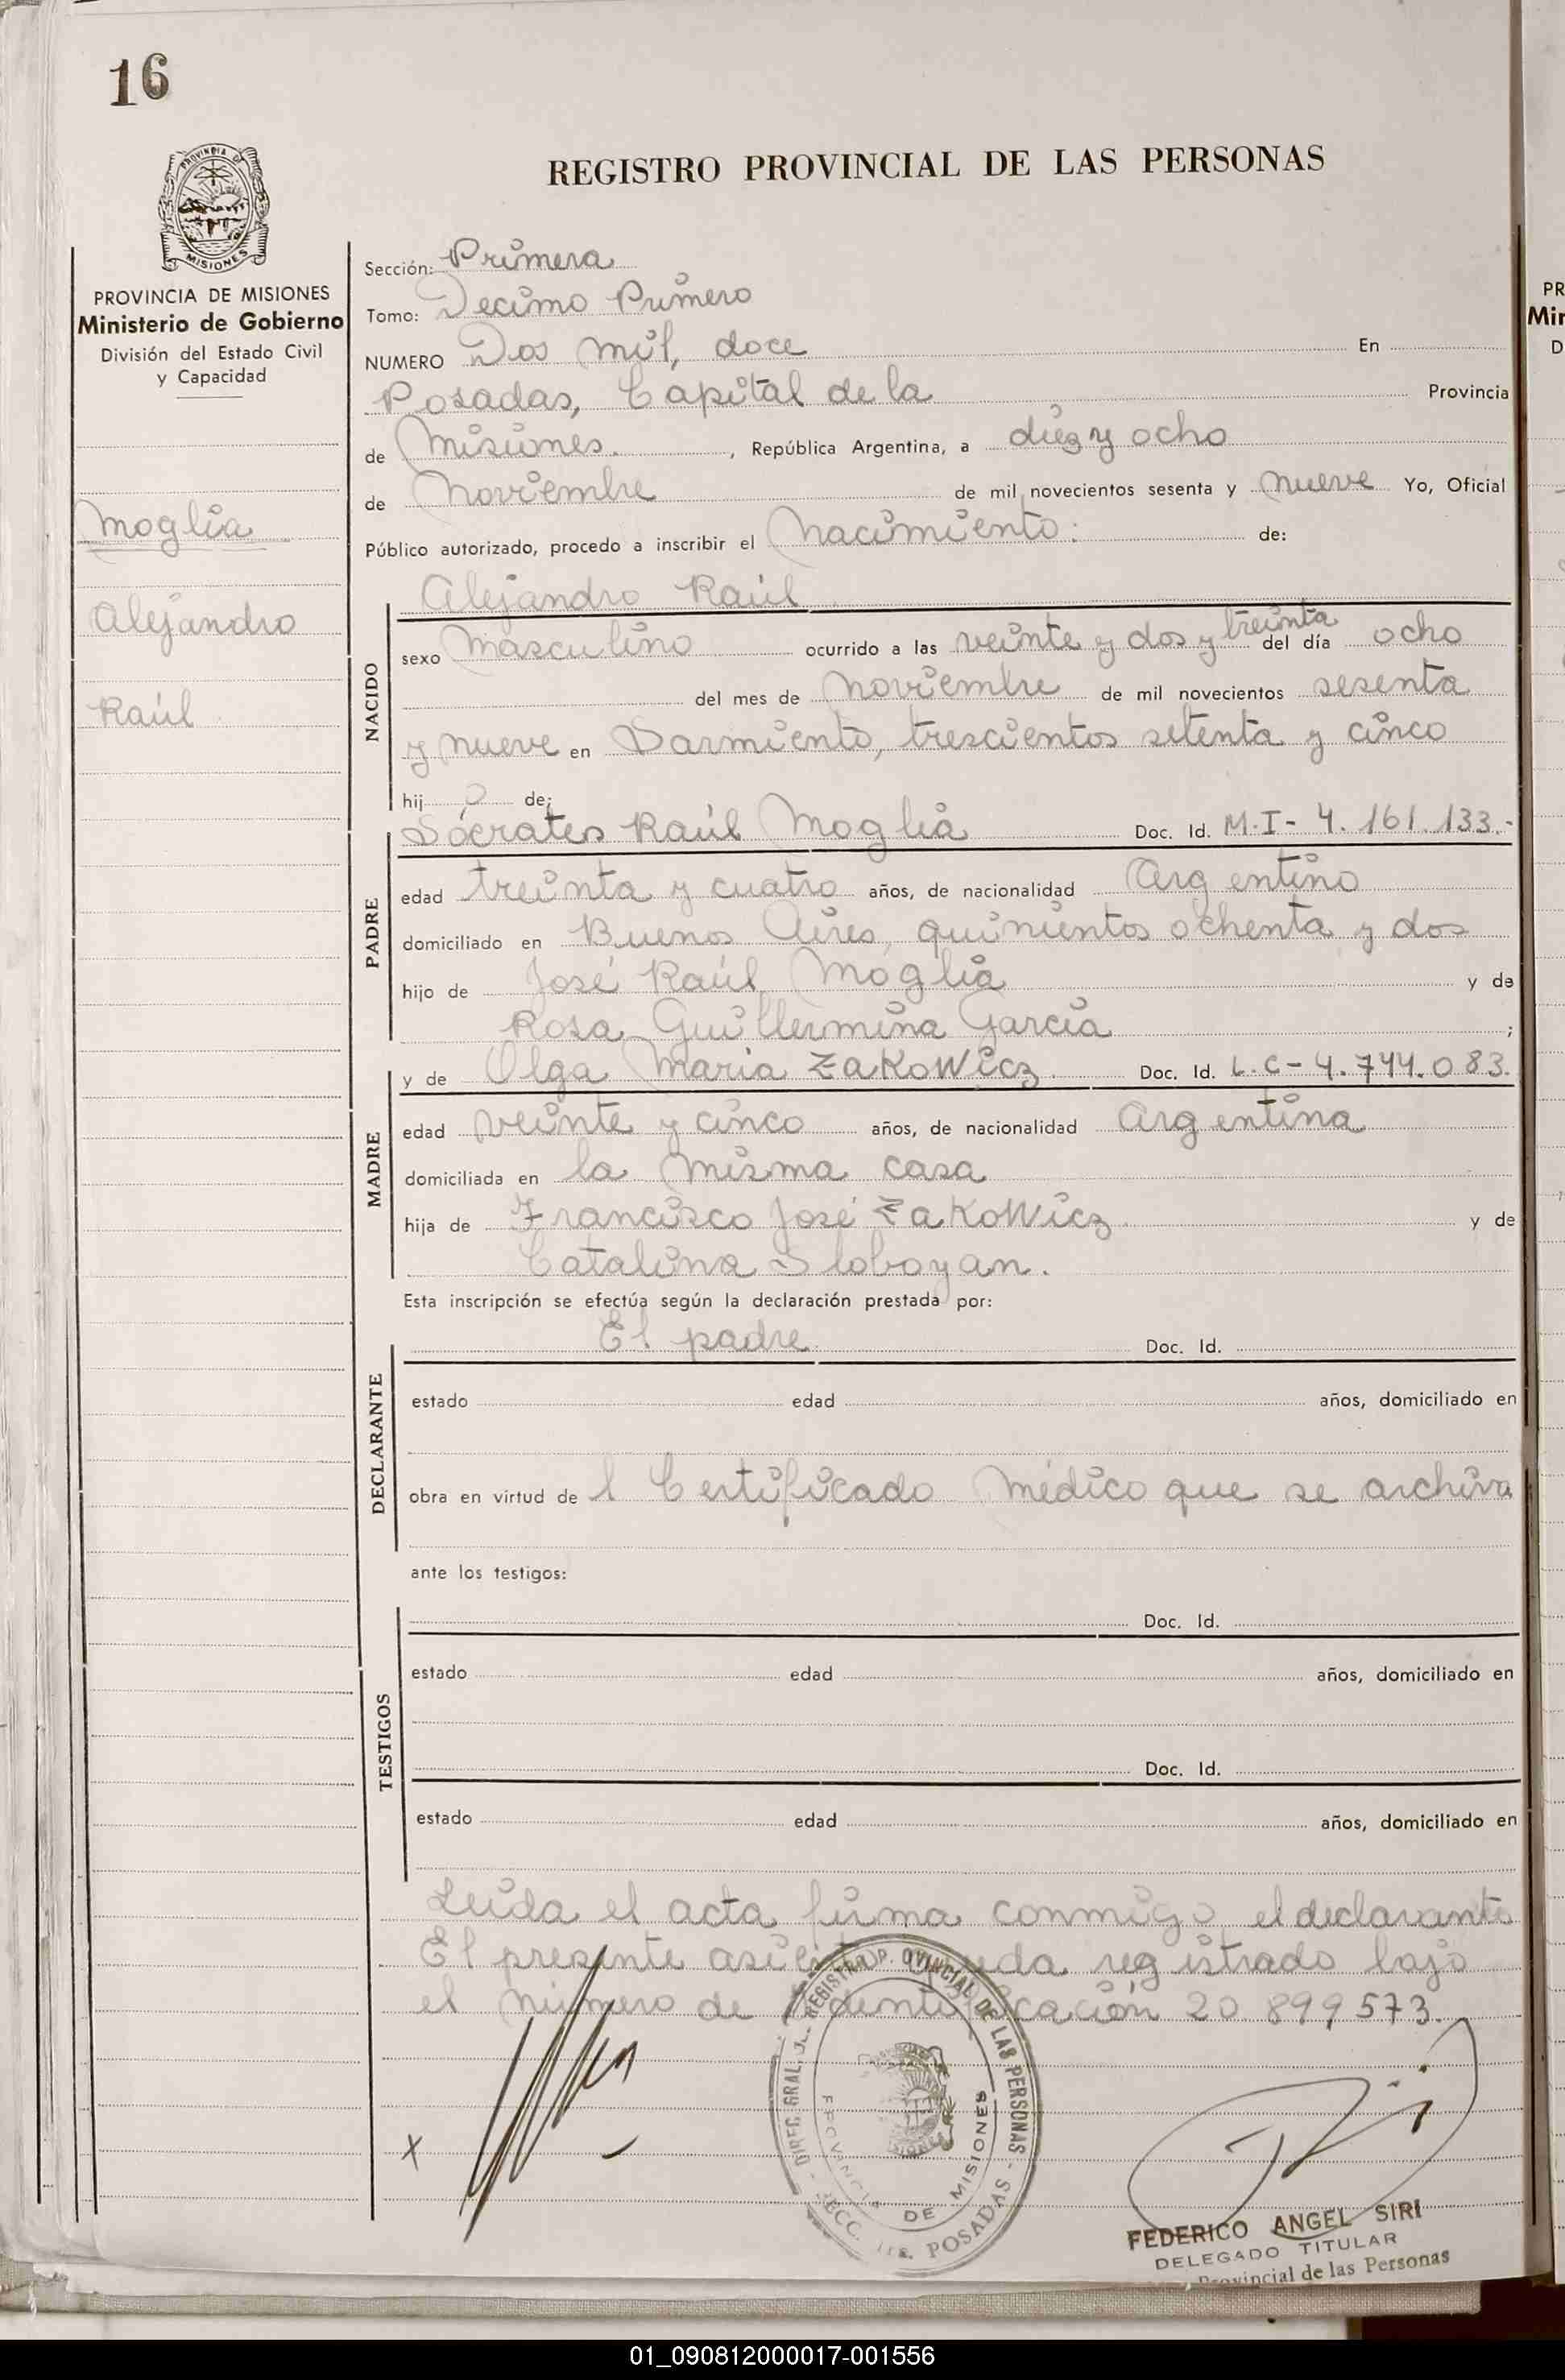 16
REGISTRO PROVINCIAL DE LAS PERSONAS
PROVINCIA DE MISIONES
Ministerio de Gobierno
División del Estado Civil
y Capacidad
Moglia
Alejandro
Raúl
Sección: Primera
Tomo: Decimo Primero
NUMERO Dos mil, doce En
Posadas, Capital de la Provincia
de Misiones. , República Argentina, a diez y ocho
de Noviembre de mil novecientos sesenta y nueve Yo, Oficial
Público autorizado, procedo a inscribir el Nacimiento: de:
Alejandro Raúl
NACIDO
sexo Masculino ocurrido a las veinte y dos y treinta del día ocho
del mes de Noviembre de mil novecientos sesenta
y nueve en Sarmiento, trescientos setenta y cinco
hijo de:
Sócrates Raúl Moglia Doc. Id. M.I- 4.161.133.-
PADRE
edad treinta y cuatro años, de nacionalidad Argentino
domiciliado en Buenos Aires, quinientos ochenta y dos
hijo de José Raúl Moglia y de
Rosa Guillermina García ;
y de Olga Maria Zakowicz Doc. Id. L.C- 4.744.083.
MADRE
edad veinte y cinco años, de nacionalidad Argentina
domiciliada en la misma casa
hija de Francisco José Zakowicz y de
Catalina Sloboyan.
Esta inscripción se efectúa según la declaración prestada por:
El padre Doc. Id.
DECLARANTE
estado edad años, domiciliado en
obra en virtud de l Certificado Médico que se archiva
ante los testigos:
Doc. Id.
TESTIGOS
estado edad años, domiciliado en
Doc. Id.
estado edad años, domiciliado en
Leída el acta firma conmigo el declarante
El presente asiento queda registrado bajo
el número de identificación 20.899.573.
X
FEDERICO ANGEL SIRI
DELEGADO TITULAR
Provincial de las Personas
01_090812000017-001556